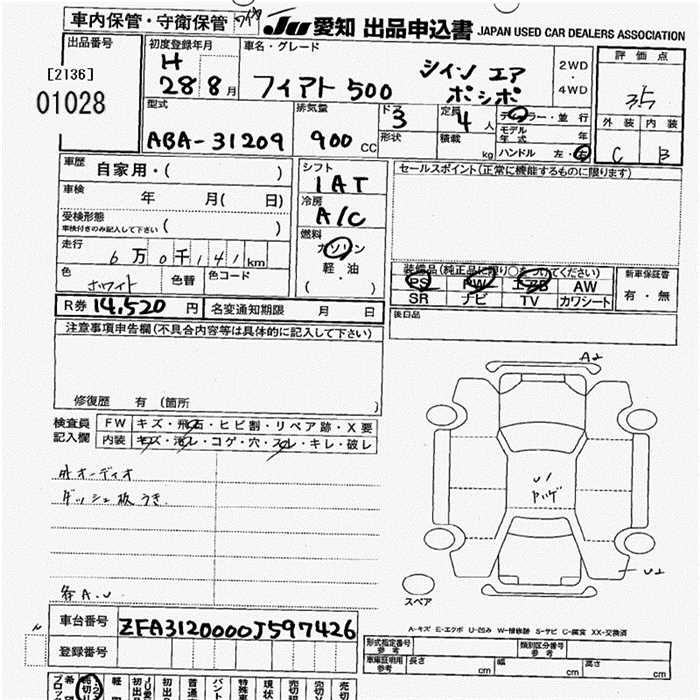 車内保管・守衛保管
JU 愛知 出品申込書 JAPAN USED CAR DEALERS ASSOCIATION
出品番号
[2136]
01028
初度登録年月
H
28 8月
車名・グレード
フィアト 500
ツインエア
ポップ
2WD
・
4WD
評価点
3.5
外装 内装
C B
型式
ABA-31209
排気量
900 CC
ドア
3
形状
定員
4人
積載
kg
ディーラー・並行
モデル年式 年
ハンドル 左・右
車歴 自家用・( )
車検 年 月( 日)
受検形態
車検付きのみ記入して下さい ( )
走行 6万0千141km
色 ホワイト 色替 色コード
シフト
IAT
冷房
A/C
燃料
ガソリン
軽油
( ・ )
セールスポイント(正常に機能するものに限ります)
装備品(純正品に限り○をつけてください)
PS PW エアB AW
SR ナビ TV カワシート
新車保証書
有・無
R券 14,520円 名変通知期限 月 日
後日品
注意事項申告欄(不具合内容等は具体的に記入して下さい)
修復歴 有 (箇所 )
検査員記入欄
FW キズ・飛石・ヒビ割・リペア跡・X要
内装 キズ・汚レ・コゲ・穴・スレ・キレ・破レ
外オーディオ
ダッシュ板うき
各A.U
A2
U1
U2
スペア
A-キズ E-エクボ U-凹み W-補修跡 S-サビ C-腐食 XX-交換済
車台番号 ZFA3120000J597426
登録番号
形式指定番号
参考
類別区分番号
参考
車庫証明用
参考
長さ cm 幅 cm 高さ cm